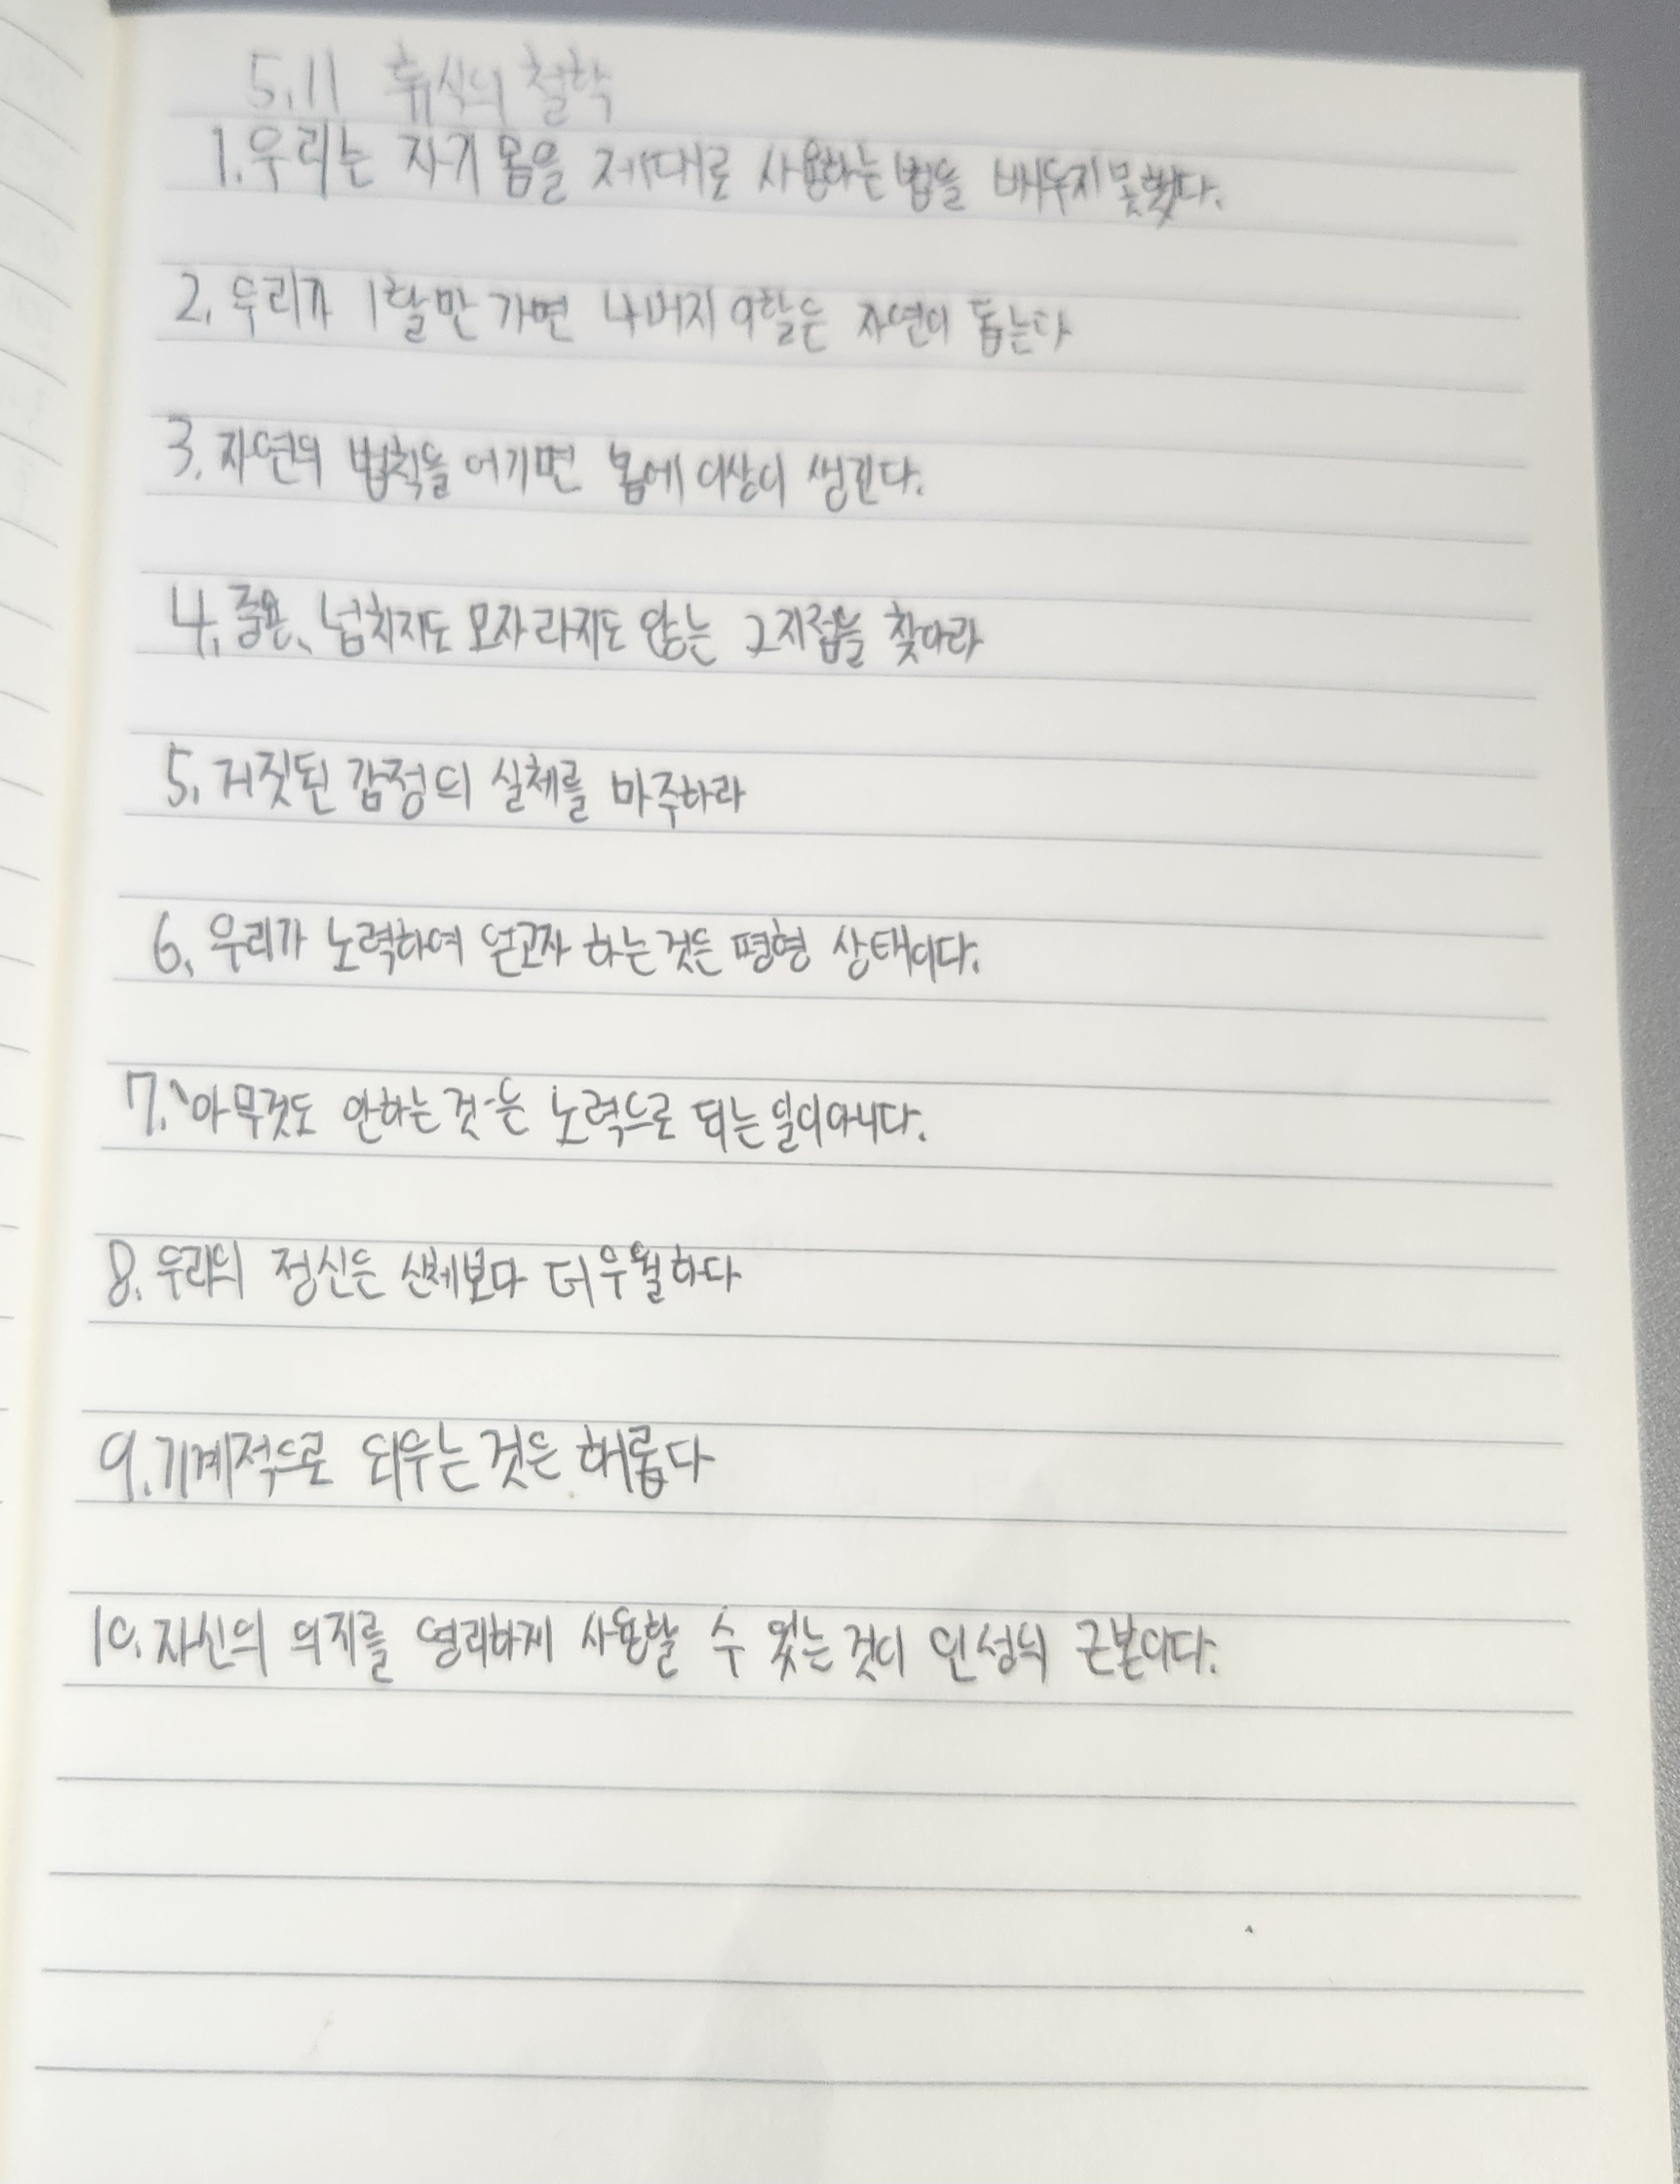 5.11 휴식의 철학
1. 우리는 자기 몸을 제대로 사용하는 법을 배우지 못했다.
2. 우리가 1할만 가면 나머지 9할은 자연이 돕는다
3. 자연의 법칙을 어기면 몸에 이상이 생긴다.
4. 중용, 넘치지도 모자라지도 않는 그 지점을 찾아라
5. 거짓된 감정의 실체를 마주하라
6. 우리가 노력하여 얻고자 하는 것은 평형 상태이다.
7. '아무것도 안하는 것'은 노력으로 되는 일이 아니다.
8. 우리의 정신은 신체보다 더 우월하다
9. 기계적으로 외우는 것은 해롭다
10. 자신의 의지를 영리하게 사용할 수 있는 것이 인성의 근본이다.